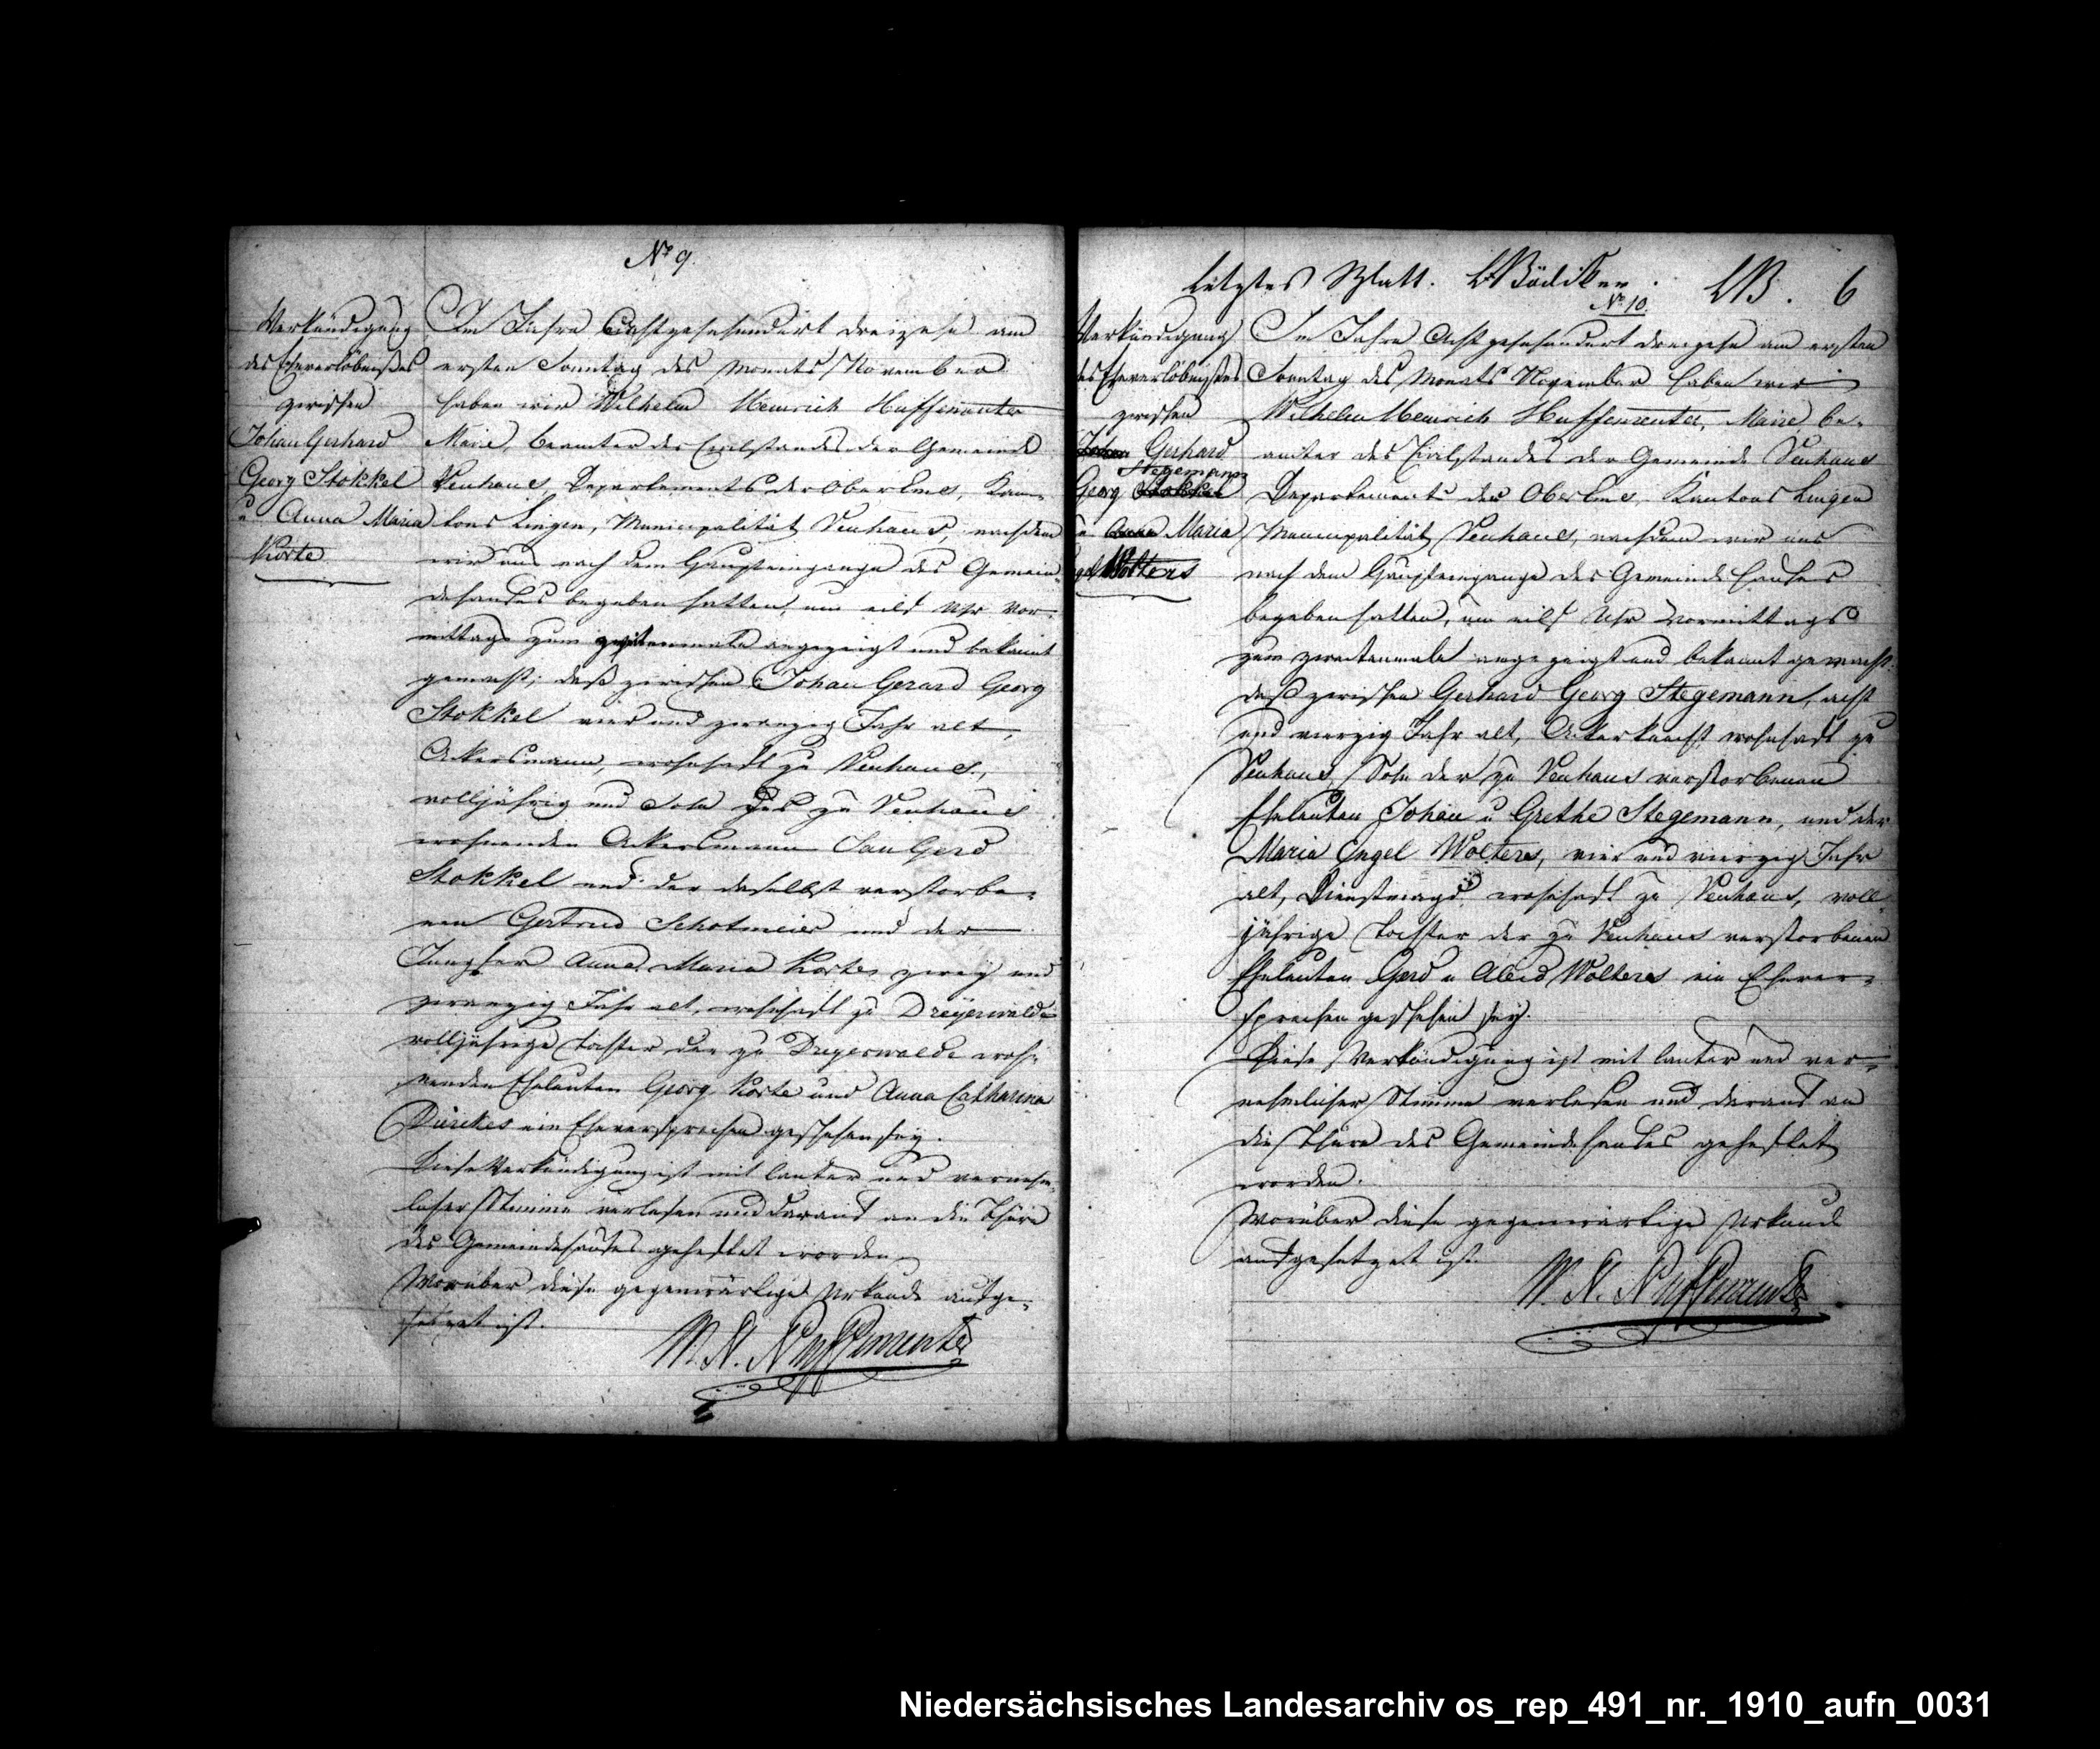 No 9.
Verkündigung
des Eheverlöbnißes
zwischen
Johan Gerhard
Georg Stokkel
u Anna Maria
Korte
Im Jahre Achtzehnhundert dreizehn am
ersten Sonntag des Monats November
haben wir Wilhelm Heinrich
Maire, beamter des Civilstandes der Gemeinde
Venhaus, Departements der Ober Ems, Kan-
tons Lingen, Municipalität Venhaus, nachdem
wir uns nach dem Haupteingange des Gemein-
dehauses begeben hatten, um eilf Uhr Vor-
mittags zum angezeigt und bekannt
gemacht, daß zwischen Johan Gerard Georg
Stokkel vier und zwanzig Jahr alt,
Ackersmann, wohnhaft zu Venhaus,
volljährig und Sohn des zu Venhaus
wohnenden Ackersmann Jan Gerd
Stokkel und der daselbst verstorbe-
nen Gertrud Schotmeier und der
Jungfer Anna Maria Korte, zwey und
zwanzig Jahr alt, wohnhaft zu Dreyerwalde
volljährige Tochter der zu Dreyerwalde woh-
nenden Eheleuten Georg Korte und Anna Catharina
ein Eheversprechen geschehen sey.
Diese Verkündigung ist mit lauter und vernehm-
licher Stimme verlesen und darauf an die Thüre
des Gemeindehauses geheftet worden.
Worüber diese gegenwärtige Urkunde aufge-
setzet ist.
letztes Blatt. Bödiker. LB. 6
No 10.
Verkündigung
des Eheverlöbnißes
zwischen
Johan Gerhard
Stegemann
Georg Stokkel
u Anna Maria
Engel Wolters
Im Jahre Achtzehnhundert dreizehn am ersten
Sonntag des Monats November haben wir
Wilhelm Heinrich Maire be-
amter des Civilstandes der Gemeinde Venhaus
Departements der Ober Ems, Kantons Lingen
Municipalität Venhaus, nachdem wir uns
nach dem Haupteingange des Gemeindehauses
begeben hatten, um eilf Uhr Vormittags
zum zweitenmale angezeigt und bekannt gemacht:
daß zwischen Gerhard Georg Stegemann, acht
und vierzig Jahr alt, Ackerknecht, wohnhaft zu
Venhaus, Sohn der zu Venhaus verstorbenen
Eheleuten Johan u Grethe Stegemann, und der
Maria Engel Wolters, vier und vierzig Jahr
alt, Dienstmagd, wohnhaft zu Venhaus, voll-
jährige Tochter der zu Venhaus verstorbenen
Eheleuten Gerd u Aleid Wolters ein Ehever-
sprechen geschehen sey.
Diese Verkündigung ist mit lauter und ver-
nehmlicher Stimme verlesen und darauf an
die Thüre des Gemeindehauses geheftet
worden.
Worüber diese gegenwärtige Urkunde
aufgesetzet ist.
Niedersächsisches Landesarchiv os_rep_491_nr._1910_aufn_0031